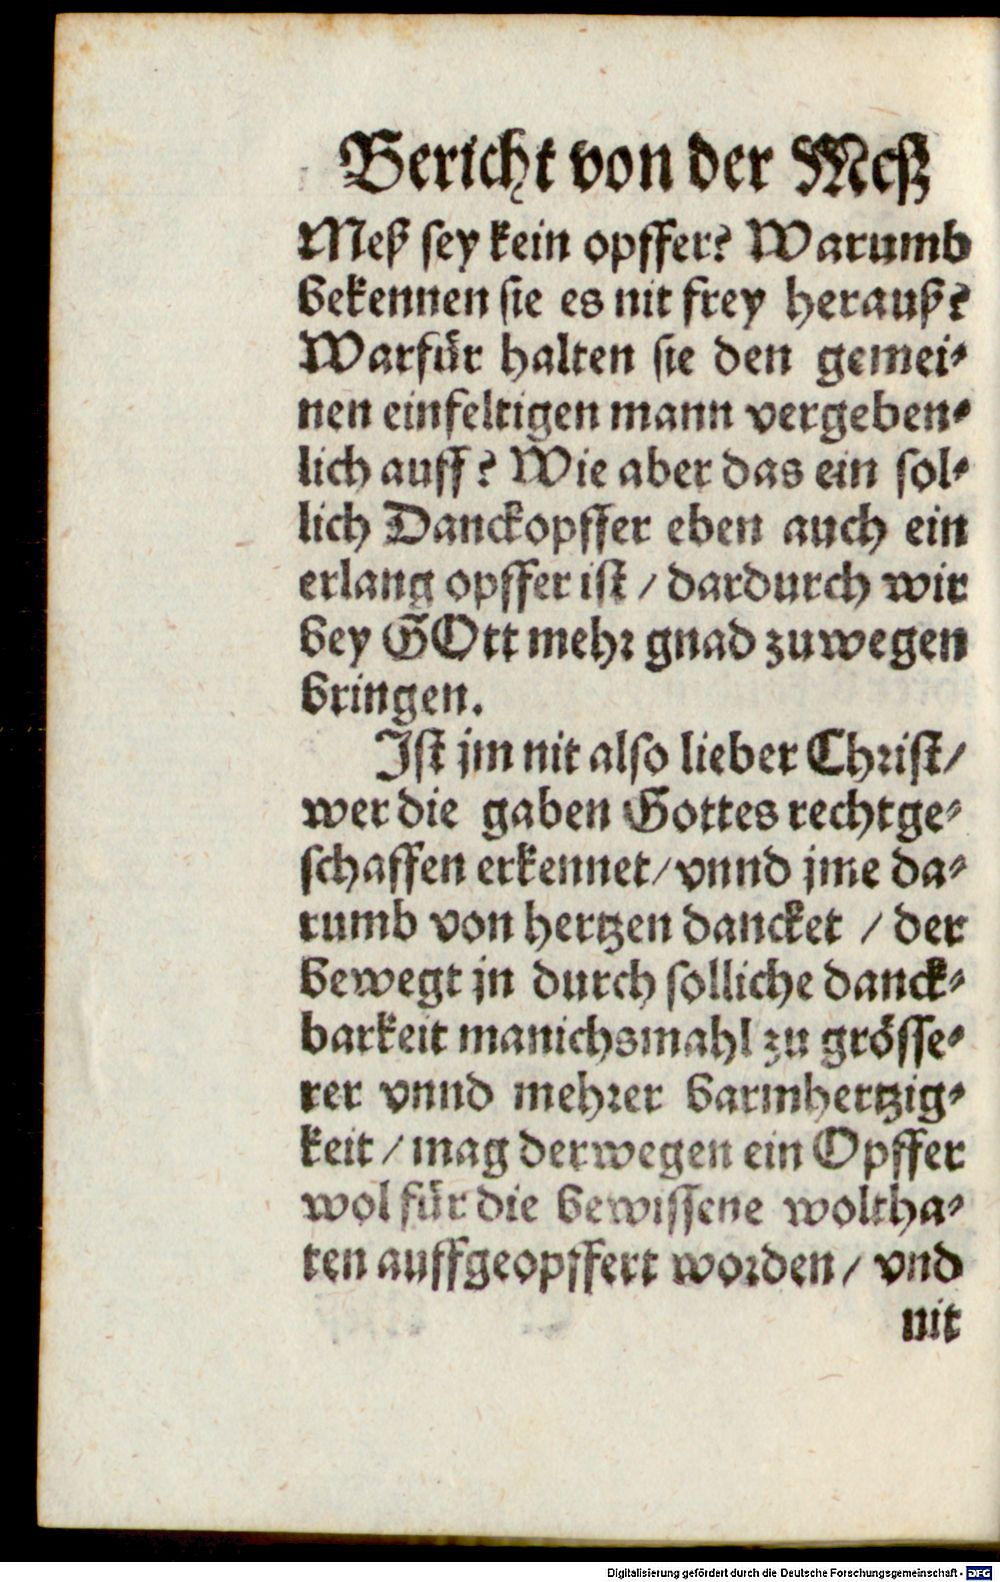 Bericht von der Meß
Meß sey kein opffer? Warumb
bekennen sie es nit frey herauß?
Warfür halten sie den gemei-
nen einfeltigen mann vergeben-
lich auff? Wie aber das ein sol-
lich Danckopffer eben auch ein
erlang opffer ist / dardurch wir
bey GOtt mehr gnad zuwegen
bringen.
Ist jm nit also lieber Christ/
wer die gaben Gottes rechtge-
schaffen erkennet/ vnnd jme da-
rumb von hertzen dancket / der
bewegt jn durch solliche danck-
barkeit manichsmahl zu grösse-
rer vnnd mehrer barmhertzig-
keit / mag derwegen ein Opffer
wol für die bewissene woltha-
ten auffgeopffert worden / vnd
nit
Digitalisierung gefördert durch die Deutsche Forschungsgemeinschaft - DFG